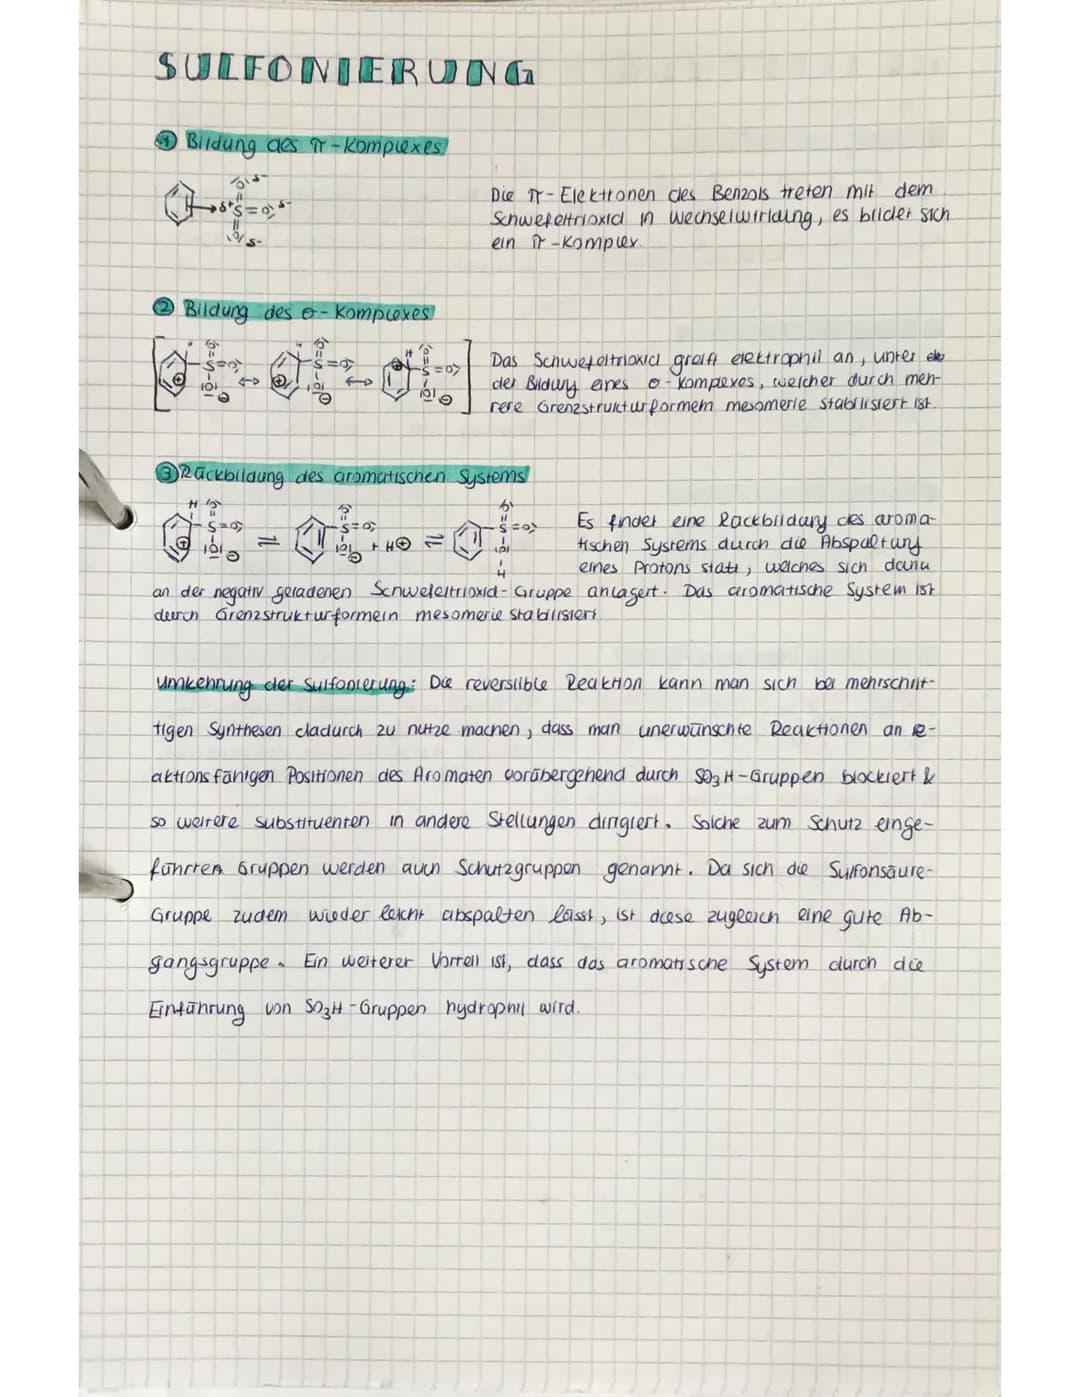 SULFONIERUNG
① Bildung des π-Komplexes
Die π-Elektronen des Benzols treten mit dem
Schwefeltrioxid in Wechselwirkung, es bildet sich
ein π-Komplex.
② Bildung des σ-Komplexes
Das Schwefeltrioxid greift elektrophil an, unter
der Bildung eines σ-Komplexes, welcher durch meh-
rere Grenzstrukturformeln mesomerie stabilisiert ist.
③ Rückbildung des aromatischen Systems
Es findet eine Rückbildung des aroma-
tischen Systems durch die Abspaltung
eines Protons statt, welches sich dann
an der negativ geladenen Schwefeltrioxid-Gruppe anlagert. Das aromatische System ist
durch Grenzstrukturformeln mesomerie stabilisiert
Umkehrung der Sulfonierung: Die reversible Reaktion kann man sich bei mehrschrit-
tigen Synthesen dadurch zu nutze machen, dass man unerwünschte Reaktionen an re-
aktionsfähigen Positionen des Aromaten vorübergehend durch SO₃H-Gruppen blockiert &
so weitere Substituenten in andere Stellungen dirigiert. Solche zum Schutz einge-
führten Gruppen werden auch Schutzgruppen genannt. Da sich die Sulfonsäure-
Gruppe zudem wieder leicht abspalten lässt, ist diese zugleich eine gute Ab-
gangsgruppe. Ein weiterer Vorteil ist, dass das aromatische System durch die
Einführung von SO₃H-Gruppen hydrophil wird.